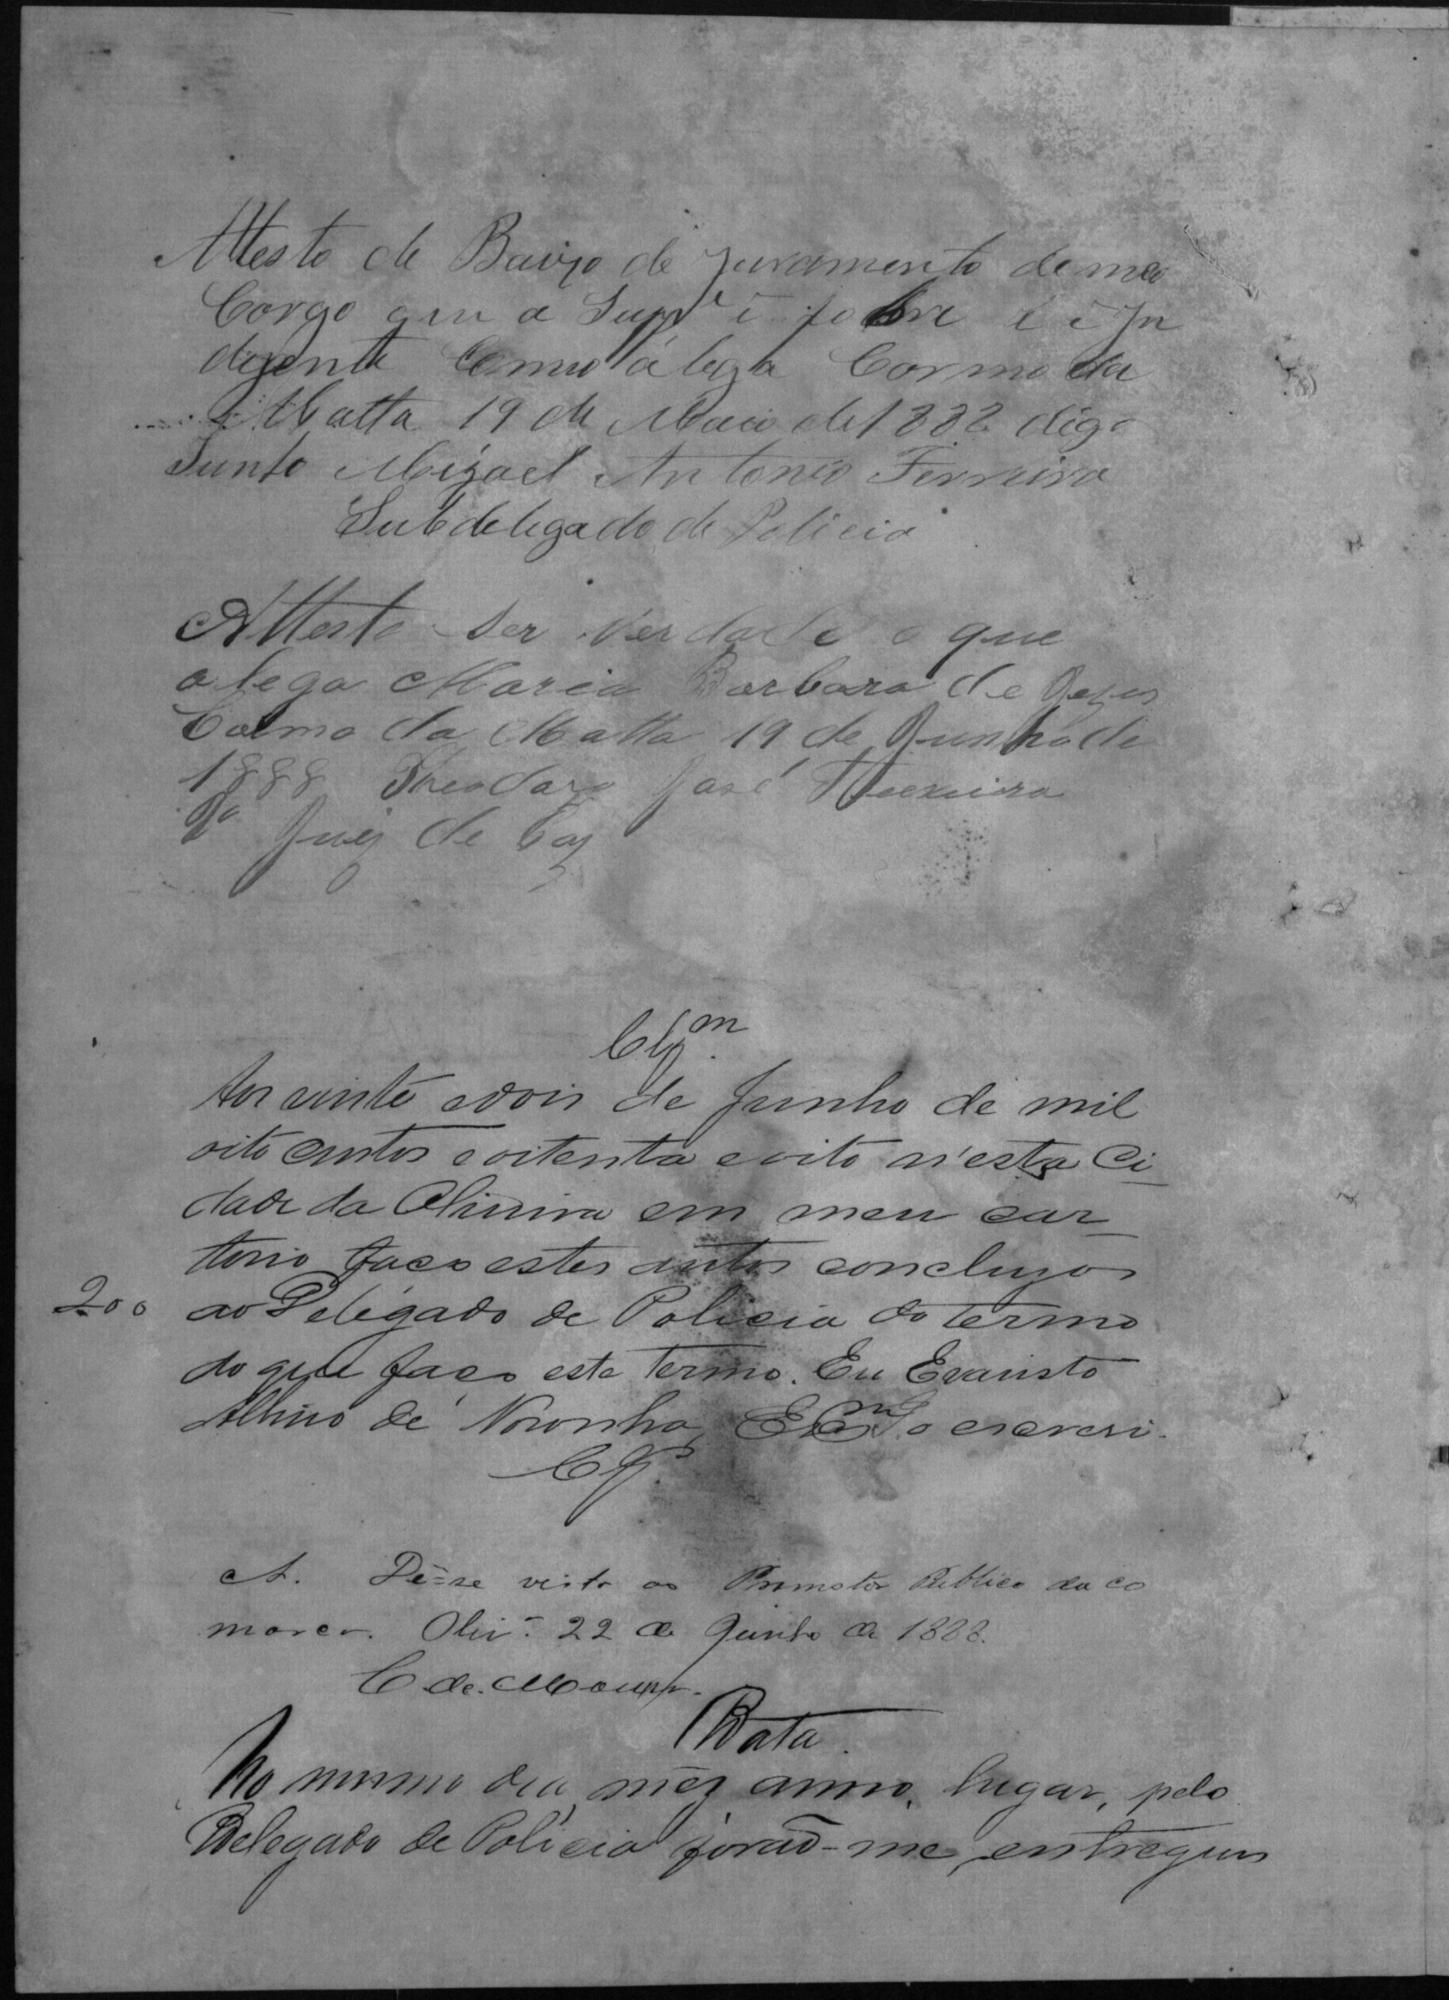 Attesto de Baixo de Juramento de meo
Cargo que a Supe é pobre e é In
digente Como álega Carmo da
Matta 19 de Maio de 1888 digo
Junho Mizael Antonio Ferreira
Subdelegado de Policia
Attesto ser verdade o que
alega Maria Barbara de Jezus
Carmo da Matta 19 de Junho de
1888 Theodoro José Teixeira
1o Juiz de Paz
Clsm
Aos vinte e dois de Junho de mil
oito centos e oitenta e oito n'esta Ci-
dade da Oliveira em meu car-
torio faco estes autos concluzos
200
ao Delegado de Policia do termo
do que faco este termo. Eu Evaristo
Albino de Noronha, o escrevi.
Cls.
A. Dê-se vista ao Promotor Publico da co
marca. Olivª. 22 de Junho de 1888.
C. de. Moura.
Data.
No mesmo dia mez anno, lugar, pelo
Delegado de Policia forão-me entregues